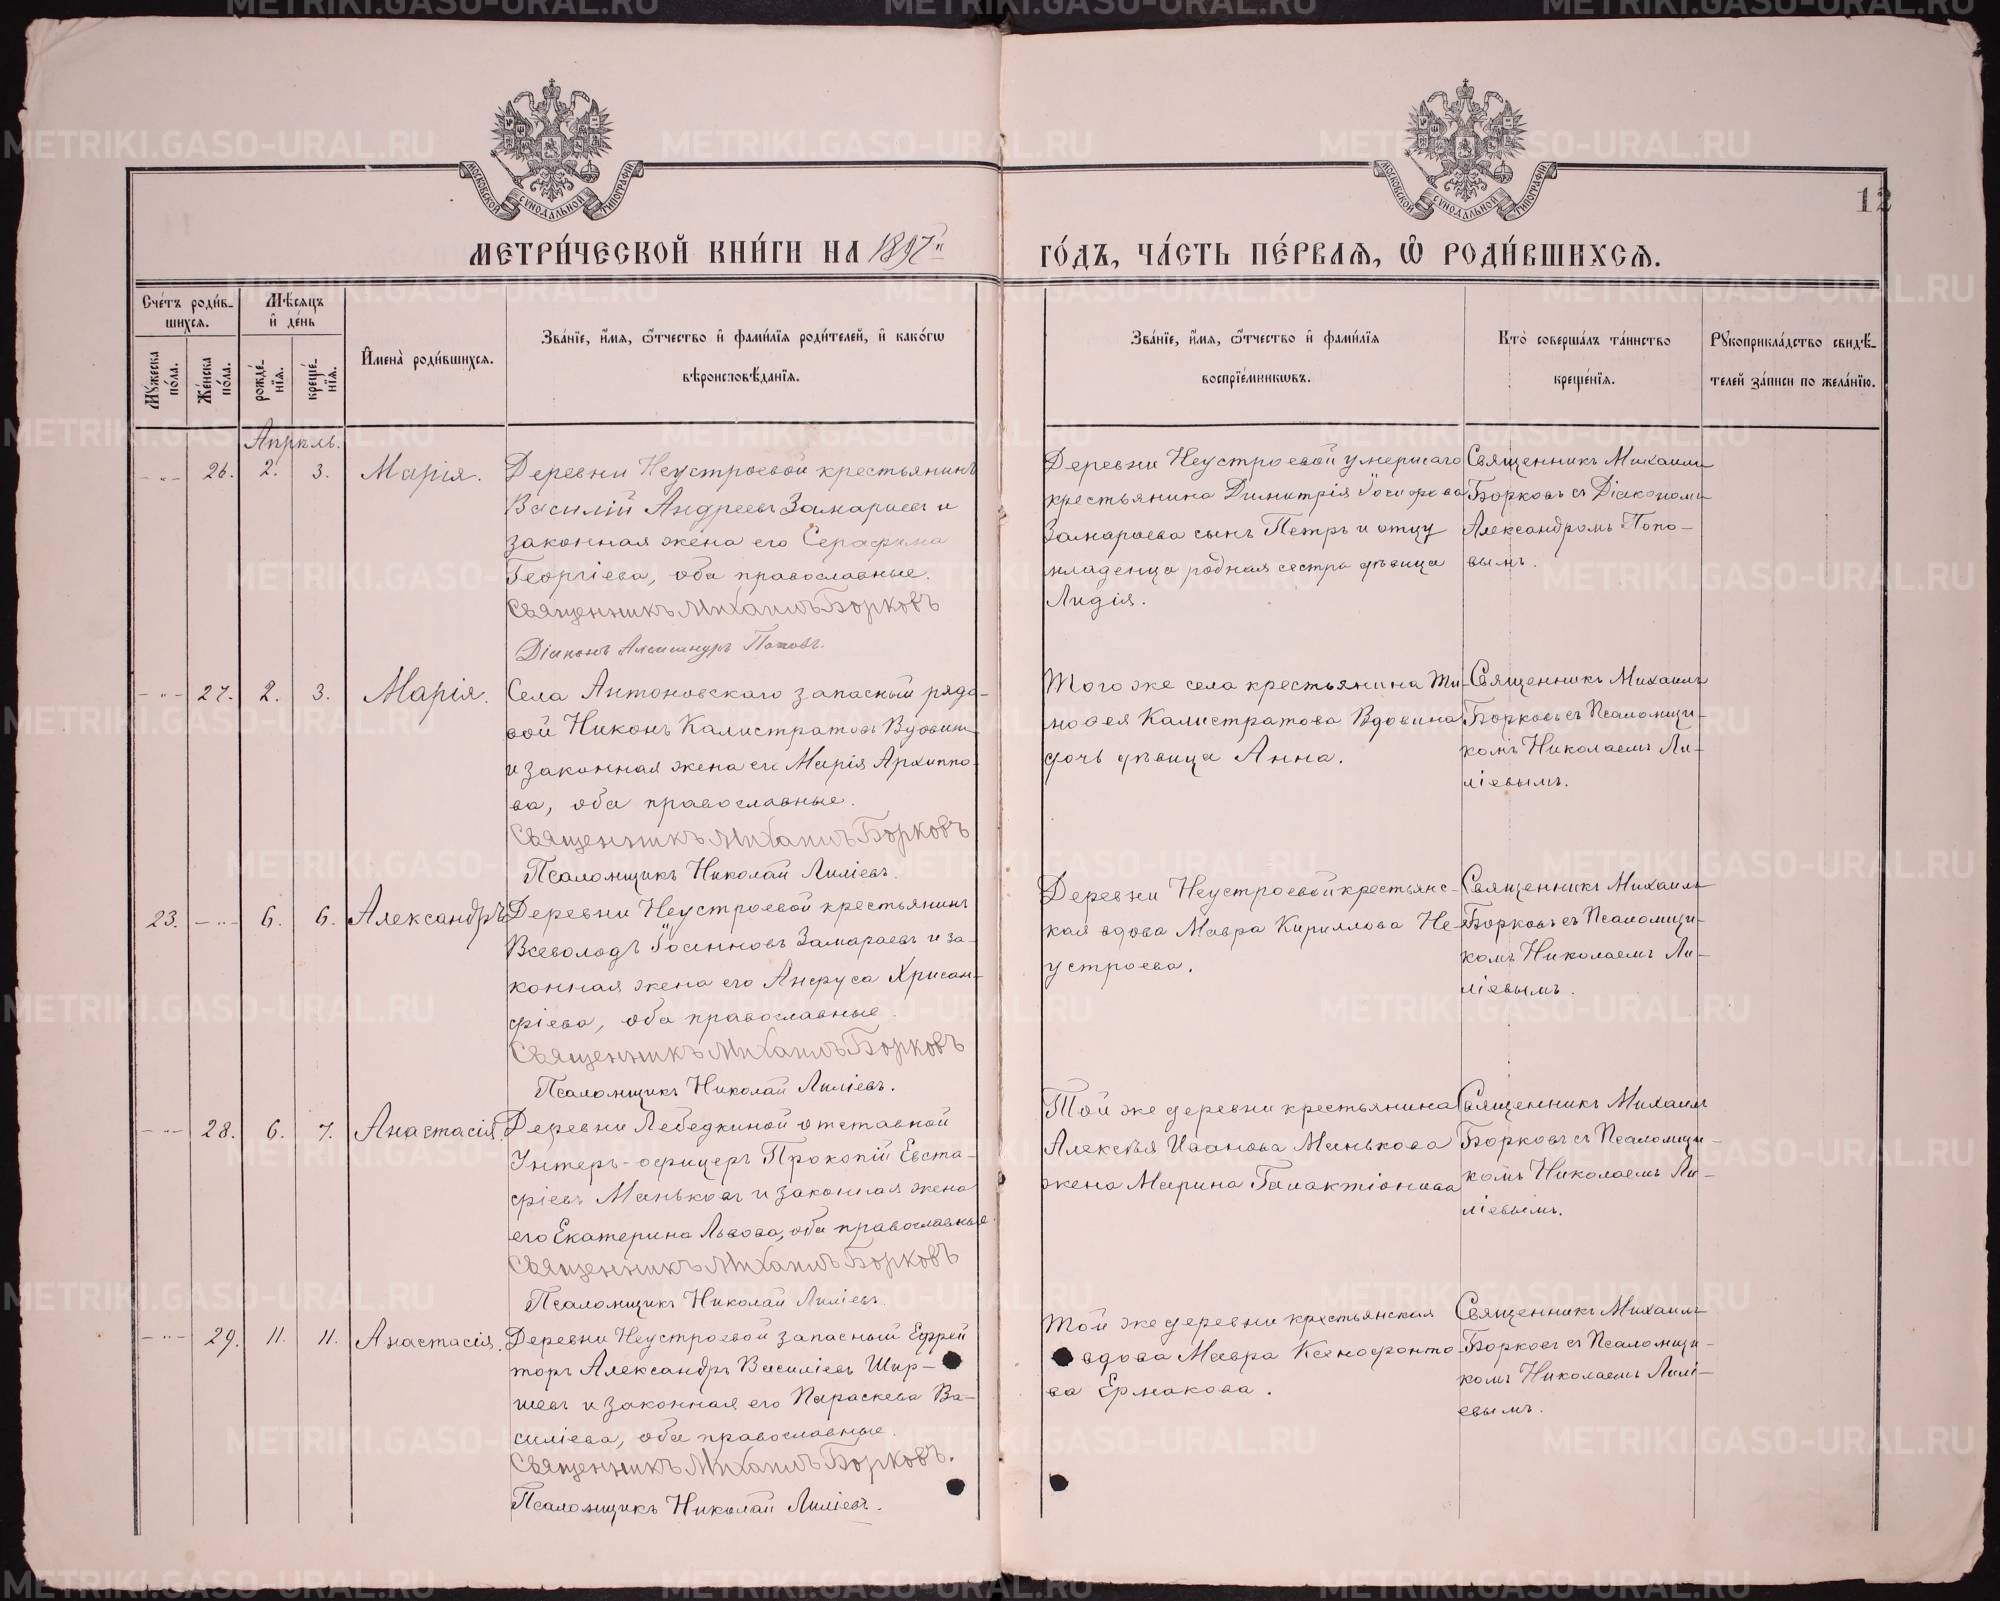 МОСКОВСКОЙ СѴНОДАЛЬНОЙ ТИПОГРАФІИ
МОСКОВСКОЙ СѴНОДАЛЬНОЙ ТИПОГРАФІИ
12
МЕТРИ́ЧЕСКОЙ КНИ́ГИ НА 1897й ГО́ДЪ, ЧА́СТЬ ПЕ́РВАѦ, Ѽ РОДИ́ВШИХСѦ.
Сче́тъ роди́в-
шихся.
Мѣ́сяцъ
и҆ де́нь
Мꙋ́жеска по́ла.
Же́нска по́ла.
рожде́-
нїя.
креще́-
нїя.
И҆мена̀ роди́вшихся.
Зва́нїе, и҆́мя, ѻ҆́тчество и҆ фами́лїя роди́телей, и҆ како́гѡ
вѣроисповѣ́данїя.
Зва́нїе, и҆́мя, ѻ҆́тчество и҆ фами́лїя
воспрїе́мникѡвъ.
Кто̀ соверша́лъ та́инство
креще́нїя.
Рꙋкоприкла́дство свидѣ́-
телей за́писи по жела́нїю.
Апрѣль.
- „ - 26. 2. 3. Марія.
Деревни Неустроевой крестьянинъ
Василій Андреевъ Замараевъ и
законная жена его Серафима
Георгіева, оба православные.
Священникъ Михаилъ Борковъ
Діаконъ Александръ Поповъ.
Деревни Неустроевой умершаго
крестьянина Димитрія Іосифова
Замараева сынъ Петръ и отцу
младенца родная сестра дѣвица
Лидія.
Священникъ Михаилъ
Борковъ съ Діакономъ
Александромъ Попо-
вымъ.
- „ - 27. 2. 3. Марія.
Села Антоновскаго запасный рядо-
вой Никонъ Калистратовъ Вдовинъ
и законная жена его Марія Архиппо-
ва, оба православные.
Священникъ Михаилъ Борковъ
Псаломщикъ Николай Лиліевъ.
Того же села крестьянина Ти-
моѳея Калистратова Вдовина
дочь дѣвица Анна.
Священникъ Михаилъ
Борковъ съ Псаломщи-
комъ Николаемъ Ли-
ліевымъ.
23. - „ - 6. 6. Александръ
Деревни Неустроевой крестьянинъ
Всеволодъ Замараевъ и за-
конная жена его Анфуса Хрисан-
фіева, оба православные.
Священникъ Михаилъ Борковъ
Псаломщикъ Николай Лиліевъ.
Деревни Неустроевой крестьянс-
кая вдова Мавра Кириллова Не-
устроева.
Священникъ Михаилъ
Борковъ съ Псаломщи-
комъ Николаемъ Ли-
ліевымъ.
- „ - 28. 6. 7. Анастасія.
Деревни Лебедкиной отставной
Унтеръ-офицеръ Прокопій Евста-
фіевъ Маньковъ и законная жена
его Екатерина Львова, оба православные.
Священникъ Михаилъ Борковъ
Псаломщикъ Николай Лиліевъ.
Той же деревни крестьянина
Алексѣя Иванова Манькова
жена Марина Галактіонова
Священникъ Михаилъ
Борковъ съ Псаломщи-
комъ Николаемъ Ли-
ліевымъ.
- „ - 29. 11. 11. Анастасія.
Деревни Неустроевой запасный Ефрей
торъ Александръ Василіевъ Шир-
шевъ и законная его Параскева Ва-
силіева, оба православные.
Священникъ Михаилъ Борковъ.
Псаломщикъ Николай Лиліевъ.
Той же деревни крестьянская
вдова Мавра Ксенофонто-
ва Ермакова.
Священникъ Михаилъ
Борковъ съ Псаломщи-
комъ Николаемъ Лилі-
евымъ.
METRIKI.GASO-URAL.RU